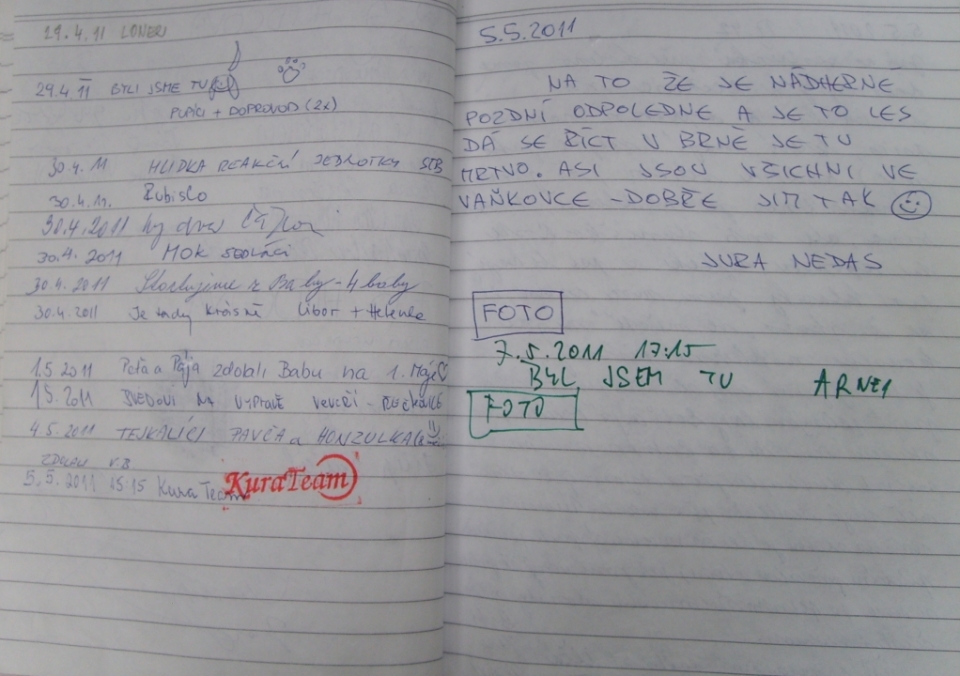 29.4.11 LONERI
29.4.11 BYLI JSME TU
PUPÍCI + DOPROVOD (2x)
30.4.11 HLÍDKA REAKČNÍ JEDNOTKY
30.4.11. Žubislo
30.4.2011
30.4.2011 MOK SEDLÁCI
30.4.2011 z Baby - 4 baby
30.4.2011 Je tady krásně Libor + Helenka
1.5 2011 Peťa a Pája zdobali Babu na 1. Máje♡
1.5.2011 DĚDOVI NA VÝPRAVĚ VEVEŘÍ -
4.5.2011 TEJKALÍCI PAVČA a HONZULKA
5.5.2011 15:15 Kura Team KuraTeam
5.5.2011
NA TO ŽE JE NÁDHERNÉ
POZDNÍ ODPOLEDNE A JE TO LES
DÁ SE ŘÍCT V BRNĚ JE TU
MRTVO. ASI JSOU VŠICHNI VE
VAŇKOVCE - DOBŘE JIM TAK ☺
JURA NEDAS
FOTO
7.5.2011 17:15
BYL JSEM TU ARNE1
FOTO